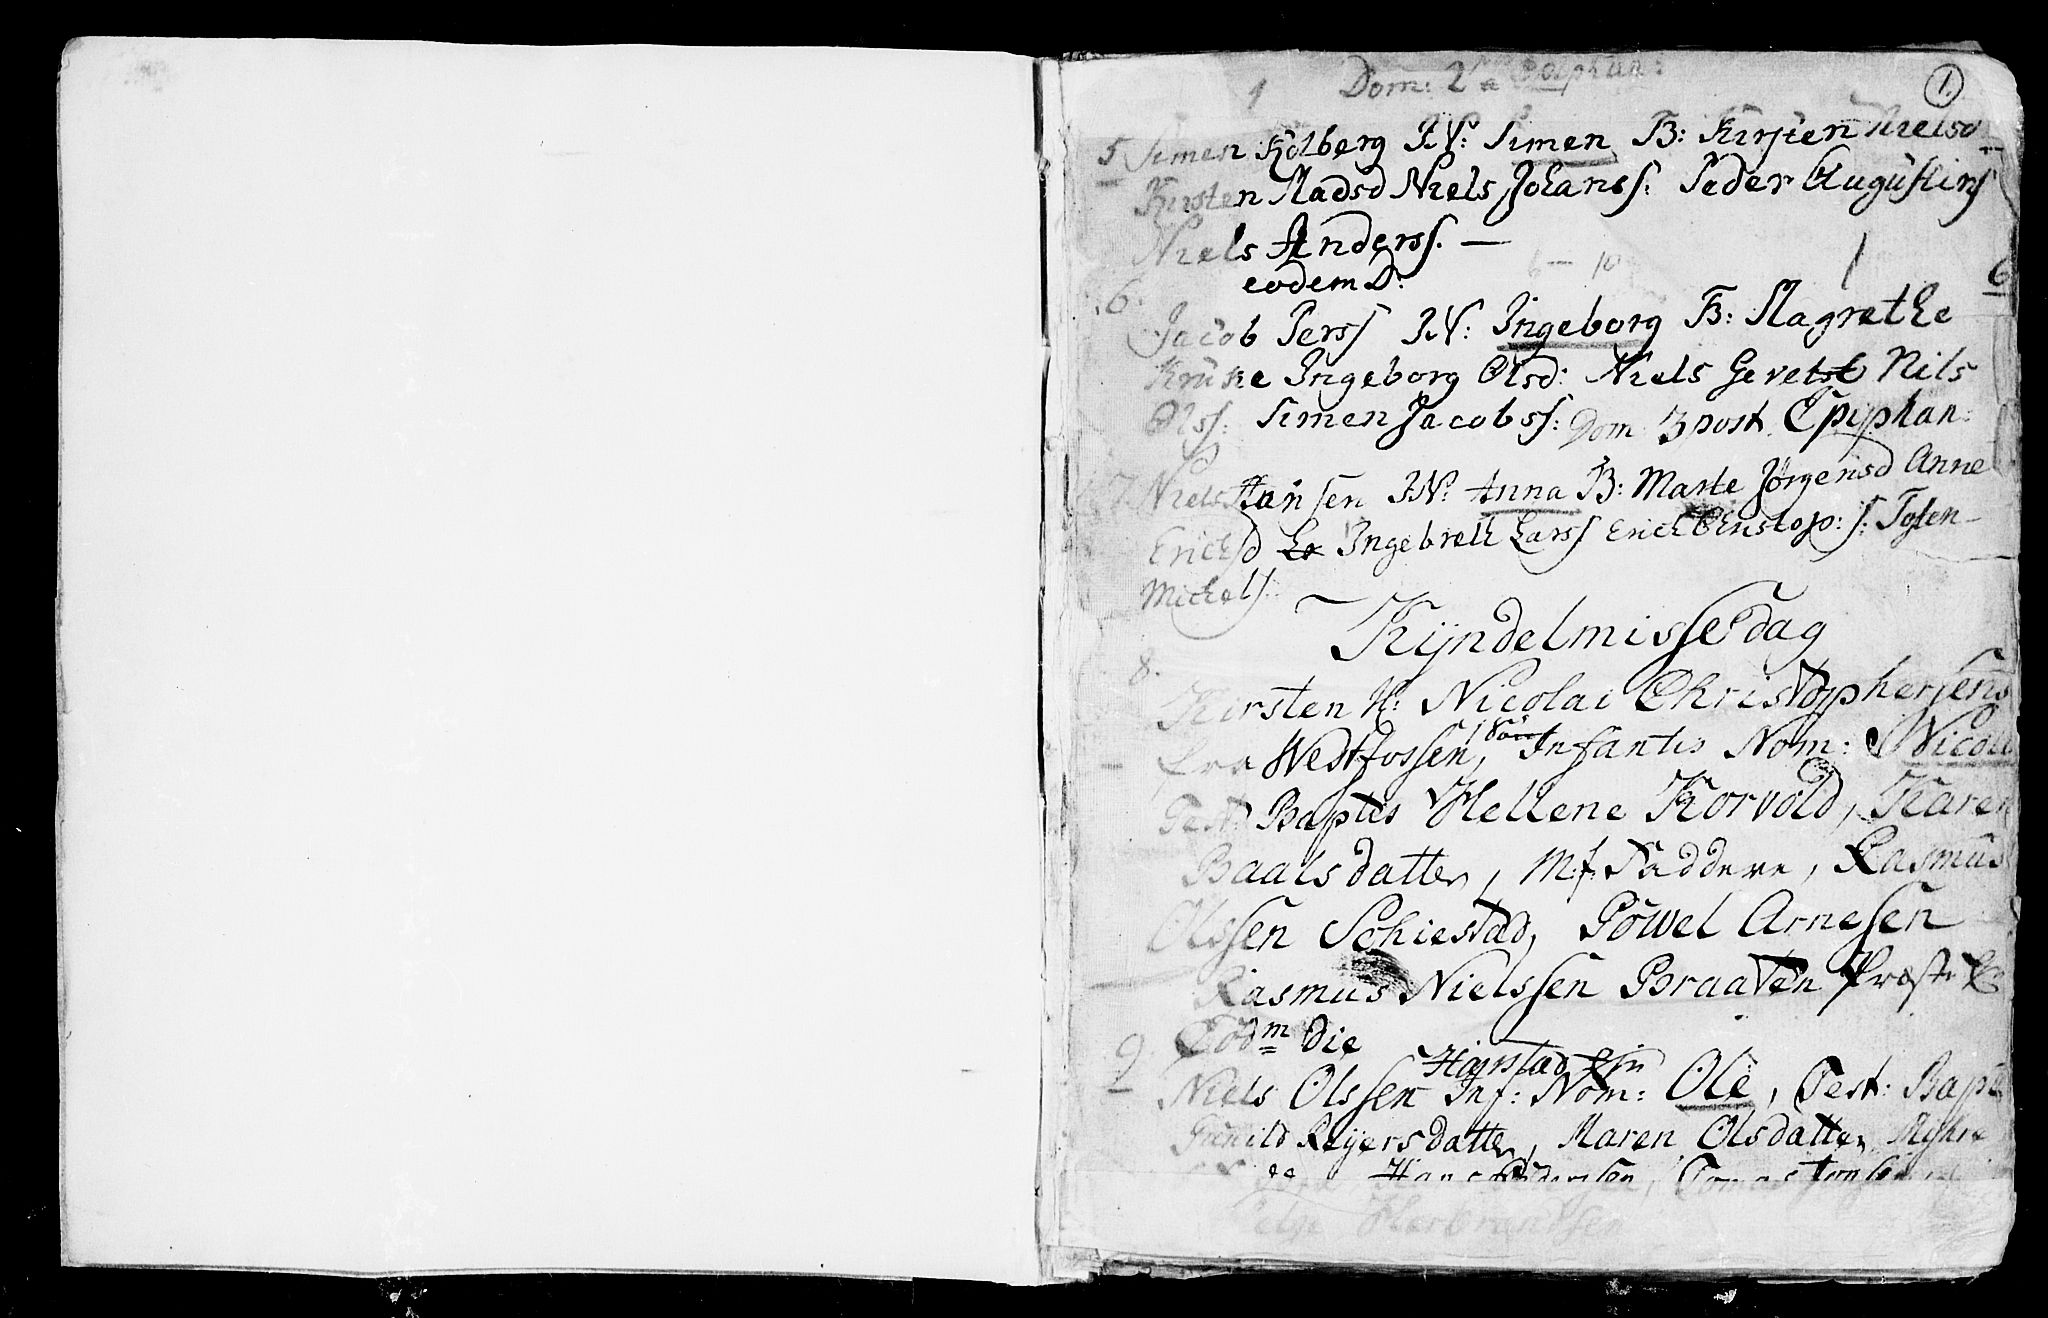 1.
Dom: 2 a Epiphan:
5 Simen Kolberg IN: Simen B: Kirsten Nielsd
Kirsten Madsd Niels Johanss: Peder Augustins
Niels Anderss. —
6 — 10
eodem D:
6.
6
Jacob Perss IN: Ingeborg B: Magrethe
Kruke Ingeborg Olsd: Niels Gevelst Nils
Olss: Simen Jacobss: Dom 3 post Epiphan:
7 Niels Hansen IN: Anna B: Marte Jørgensd Anne
Erichsd Er Ingebreth Larss Erich Christop: s: Tosten
Michels:
Kyndelmisse dag
8.
Kirsten N: Nicolai Christophersens
fra Westfossen, Infantis Nom: Nicolai
Test: Baptis Hellene Korvold, Karen
Baalsdatter, M:f: Faddere, Rasmus
Olssen Schiestad, Powel Arnesen
Rasmus Nielssen Braaten
9. Eodm die
Harstad
Niels Olssen Inf: Nom: Ole, Test: Bapt
Gunild Reyersdatter, Maren Olsdatter, Myhre
Hans Pedersen,
Helge Herbrandsen